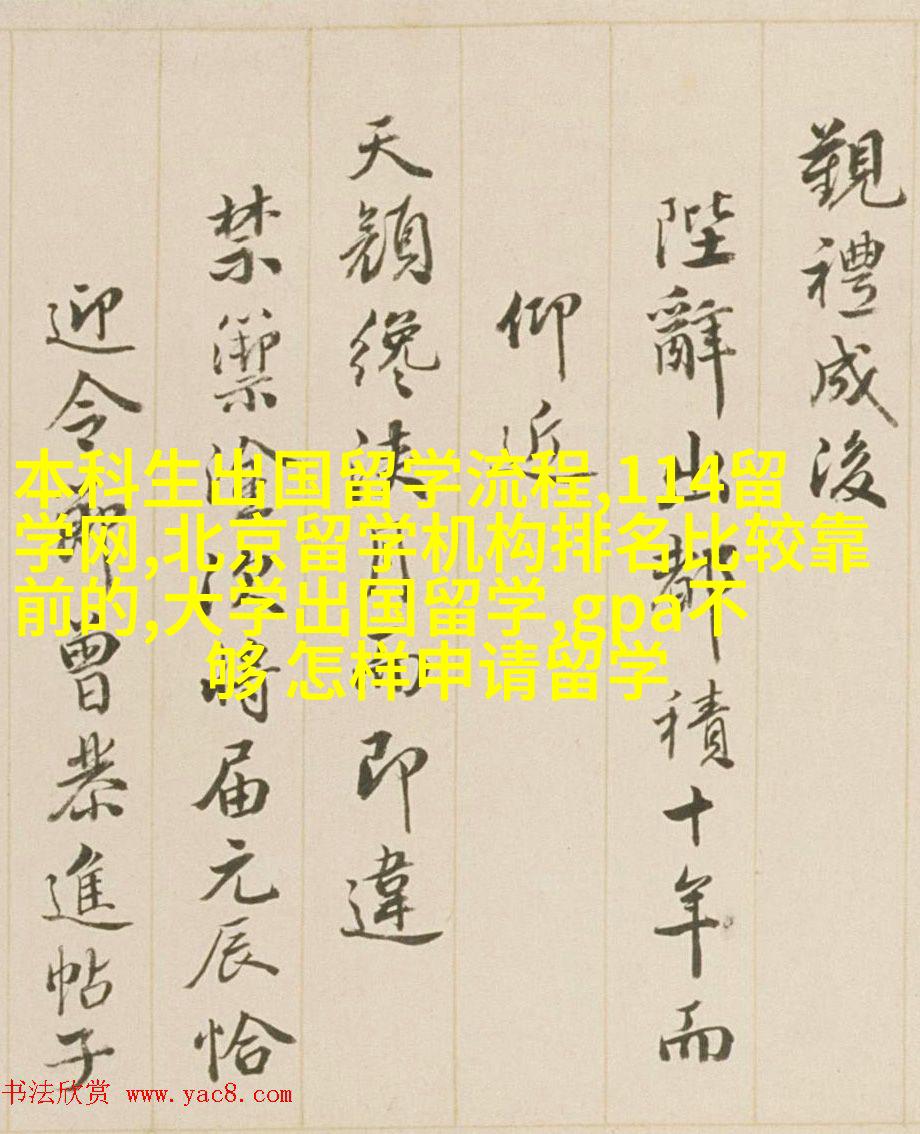 覲禮成後
陛辭出都積十年而
仰近
天顏纔浹月而即違
禁籞深時届元辰恰
迎令節曾恭進帖子
本科生出国留学流程,114留
学网,北京留学机构排名比较靠
前的,大学出国留学,gpa不
够 怎样申请留学
书法欣赏 www.yac8.com